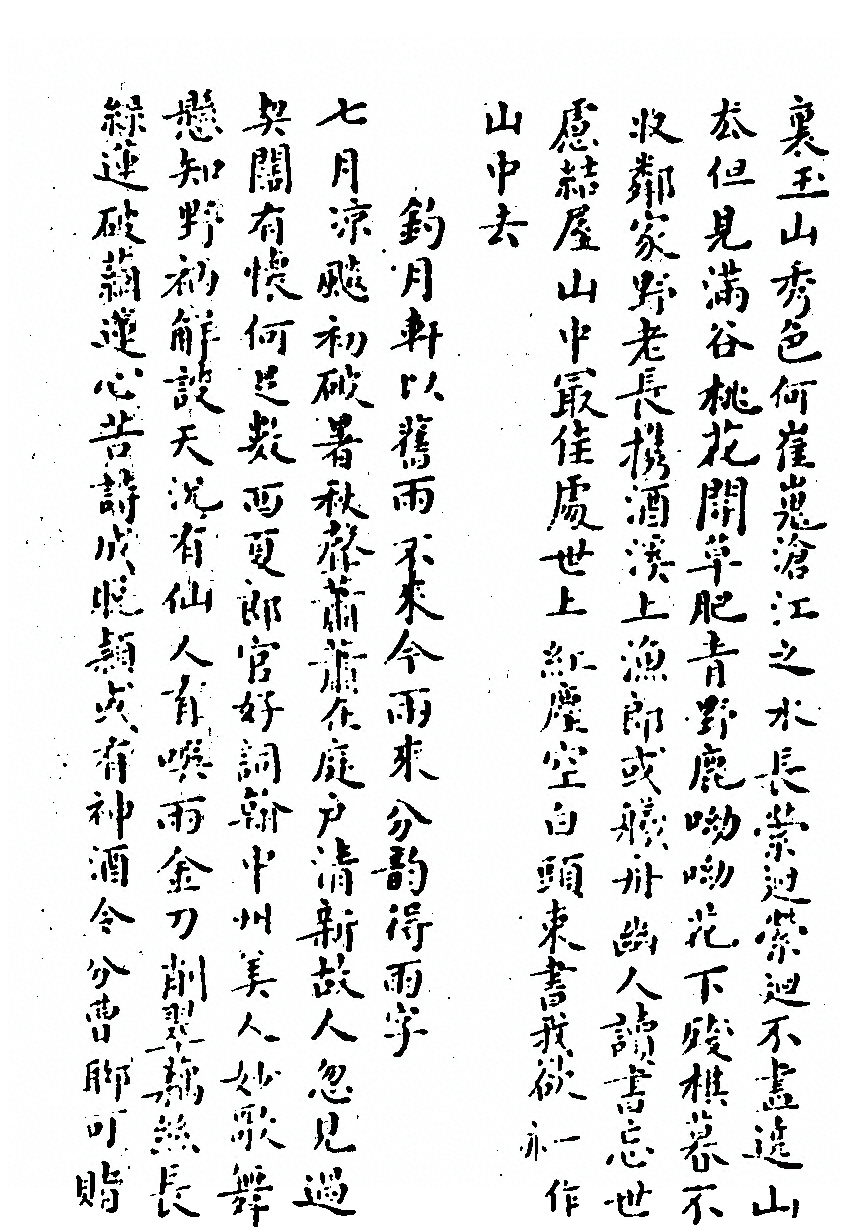 裏玉山秀色何崔嵬滄江之水長縈迴縈迴不盡遶山
太但見滿谷桃花開草肥青野鹿呦呦花下殘棋暮不
收鄰家野老長携酒溪上漁郎或艤舟幽人讀書忘世
慮結屋山中最佳處世上紅塵空白頭束書我欲一作和
山中去
釣月軒以舊雨不來今雨來分韵得雨字
七月凉飈初破暑秋聲蕭蕭在庭戶清新故人忽見過
契闊有懷何足數西夏郎官好詞翰中州美人妙歌舞
懸知野衲解談天況有仙人有噀雨金刀削翠藕絲長
綠蓮破菂蓮心苦詩成脫穎或有神酒令分曹聊可賭